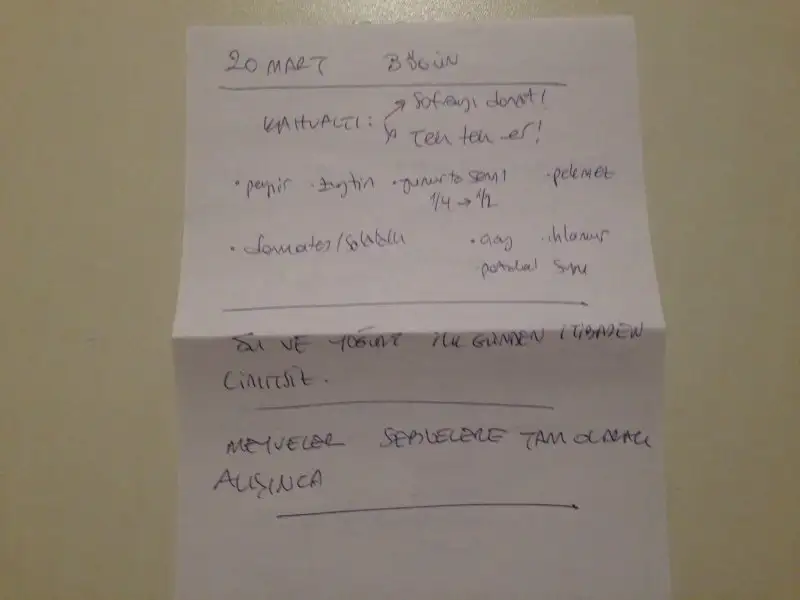 20 MART BUGÜN
KAHVALTI: → Sofrayı donat!
→ Tek tek er!
• peynir • zeytin • yumurta sarısı • pekmez
1/4 → 1/2
• domates/salatalık • çay • ıhlamur
portakal suyu
SU VE YOĞURT İLK GÜNDEN İTİBAREN
LİMİTSİZ.
MEYVELER SEBZELERE TAM OLARAK
ALIŞINCA